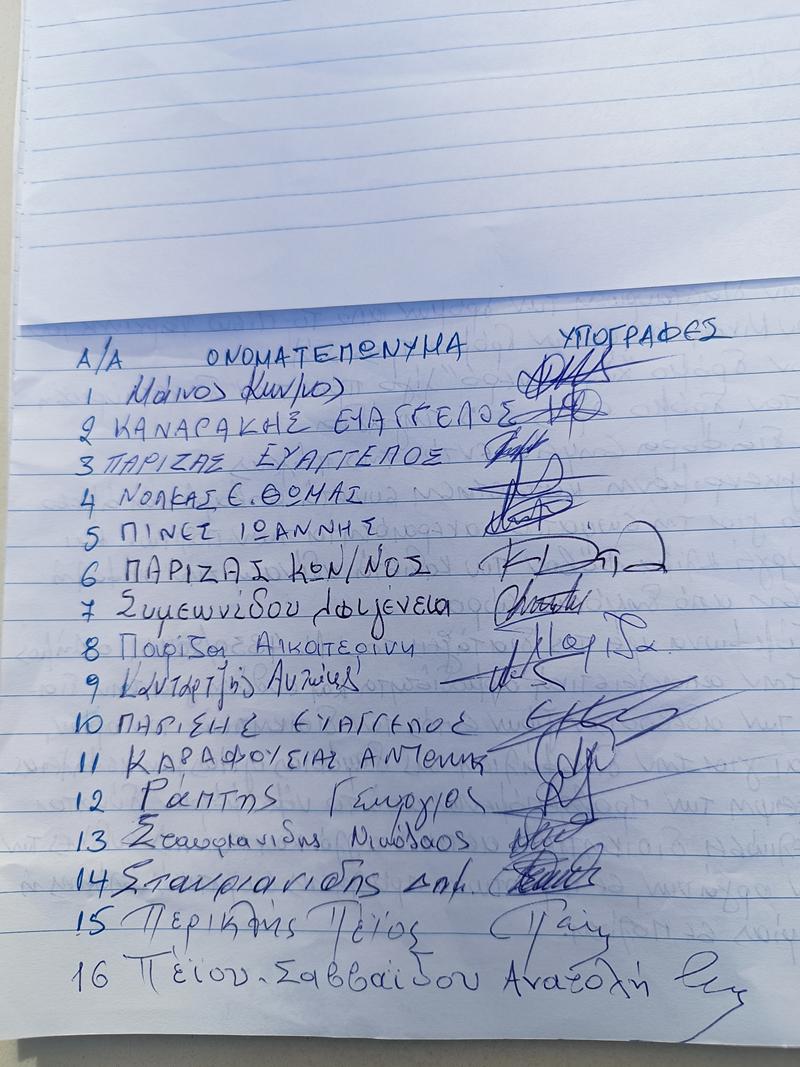 Α/Α ΟΝΟΜΑΤΕΠΩΝΥΜΑ ΥΠΟΓΡΑΦΕΣ
1 Μάινος Κων/νος
2 ΚΑΝΑΡΑΚΗΣ ΕΥΑΓΓΕΛΟΣ
3 ΠΑΡΙΖΑΣ ΕΥΑΓΓΕΛΟΣ
4 ΝΟΛΚΑΣ Ε. ΘΩΜΑΣ
5 ΠΙΝΕΣ ΙΩΑΝΝΗΣ
6 ΠΑΡΙΖΑΣ ΚΩΝ/ΝΟΣ
7 Συμεωνίδου Ιφιγένεια
8 Παρίζα Αικατερίνη
9 Κανταρτζής Αντώνης
10 ΠΑΡΙΣΗΣ ΕΥΑΓΓΕΛΟΣ
11 ΚΑΡΑΦΟΥΣΙΑΣ ΑΝΤώνης
12 Ράπτης Γεώργιος
13 Σταυριανίδης Νικόλαος
14 Σταυριανίδης Δημ.
15 Περικλής Πέϊος
16 Πέϊου-Σαββαΐδου Ανατολή